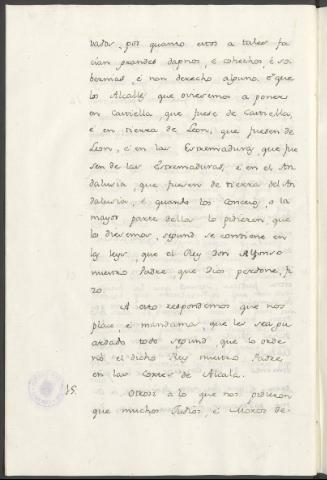 dadas, por quanto estos a tales fa
cian grandes dapnos, é cohechos, é so
bermas, é non derecho alguno. é que
los Alcalls que oviesemos a poner
en Castiella, que fuese de Castiella,
é en tierra de Leon, que fuesen de
Leon, é en las Estremaduras que fue
sen de las Estremaduras, é en el An
dalusia, que fuesen de tierra del An
dalusia, é quando los Concejos, o la
mayor parte della lo pidiesen que
lo diesemos, segund se contiene en
las leys, que el Rey Don Alfonso
nuestro Padre que Dios perdone, fi
zo.
A esto respondemos que nos
place, é mandamos que les sea gu
ardado todo segund que lo orde
nó el dicho Rey nuestro Padre
en las Cortes de Alcalá.
15. Otrosi a lo que nos pidieron
que muchos Judios, é Moros de-